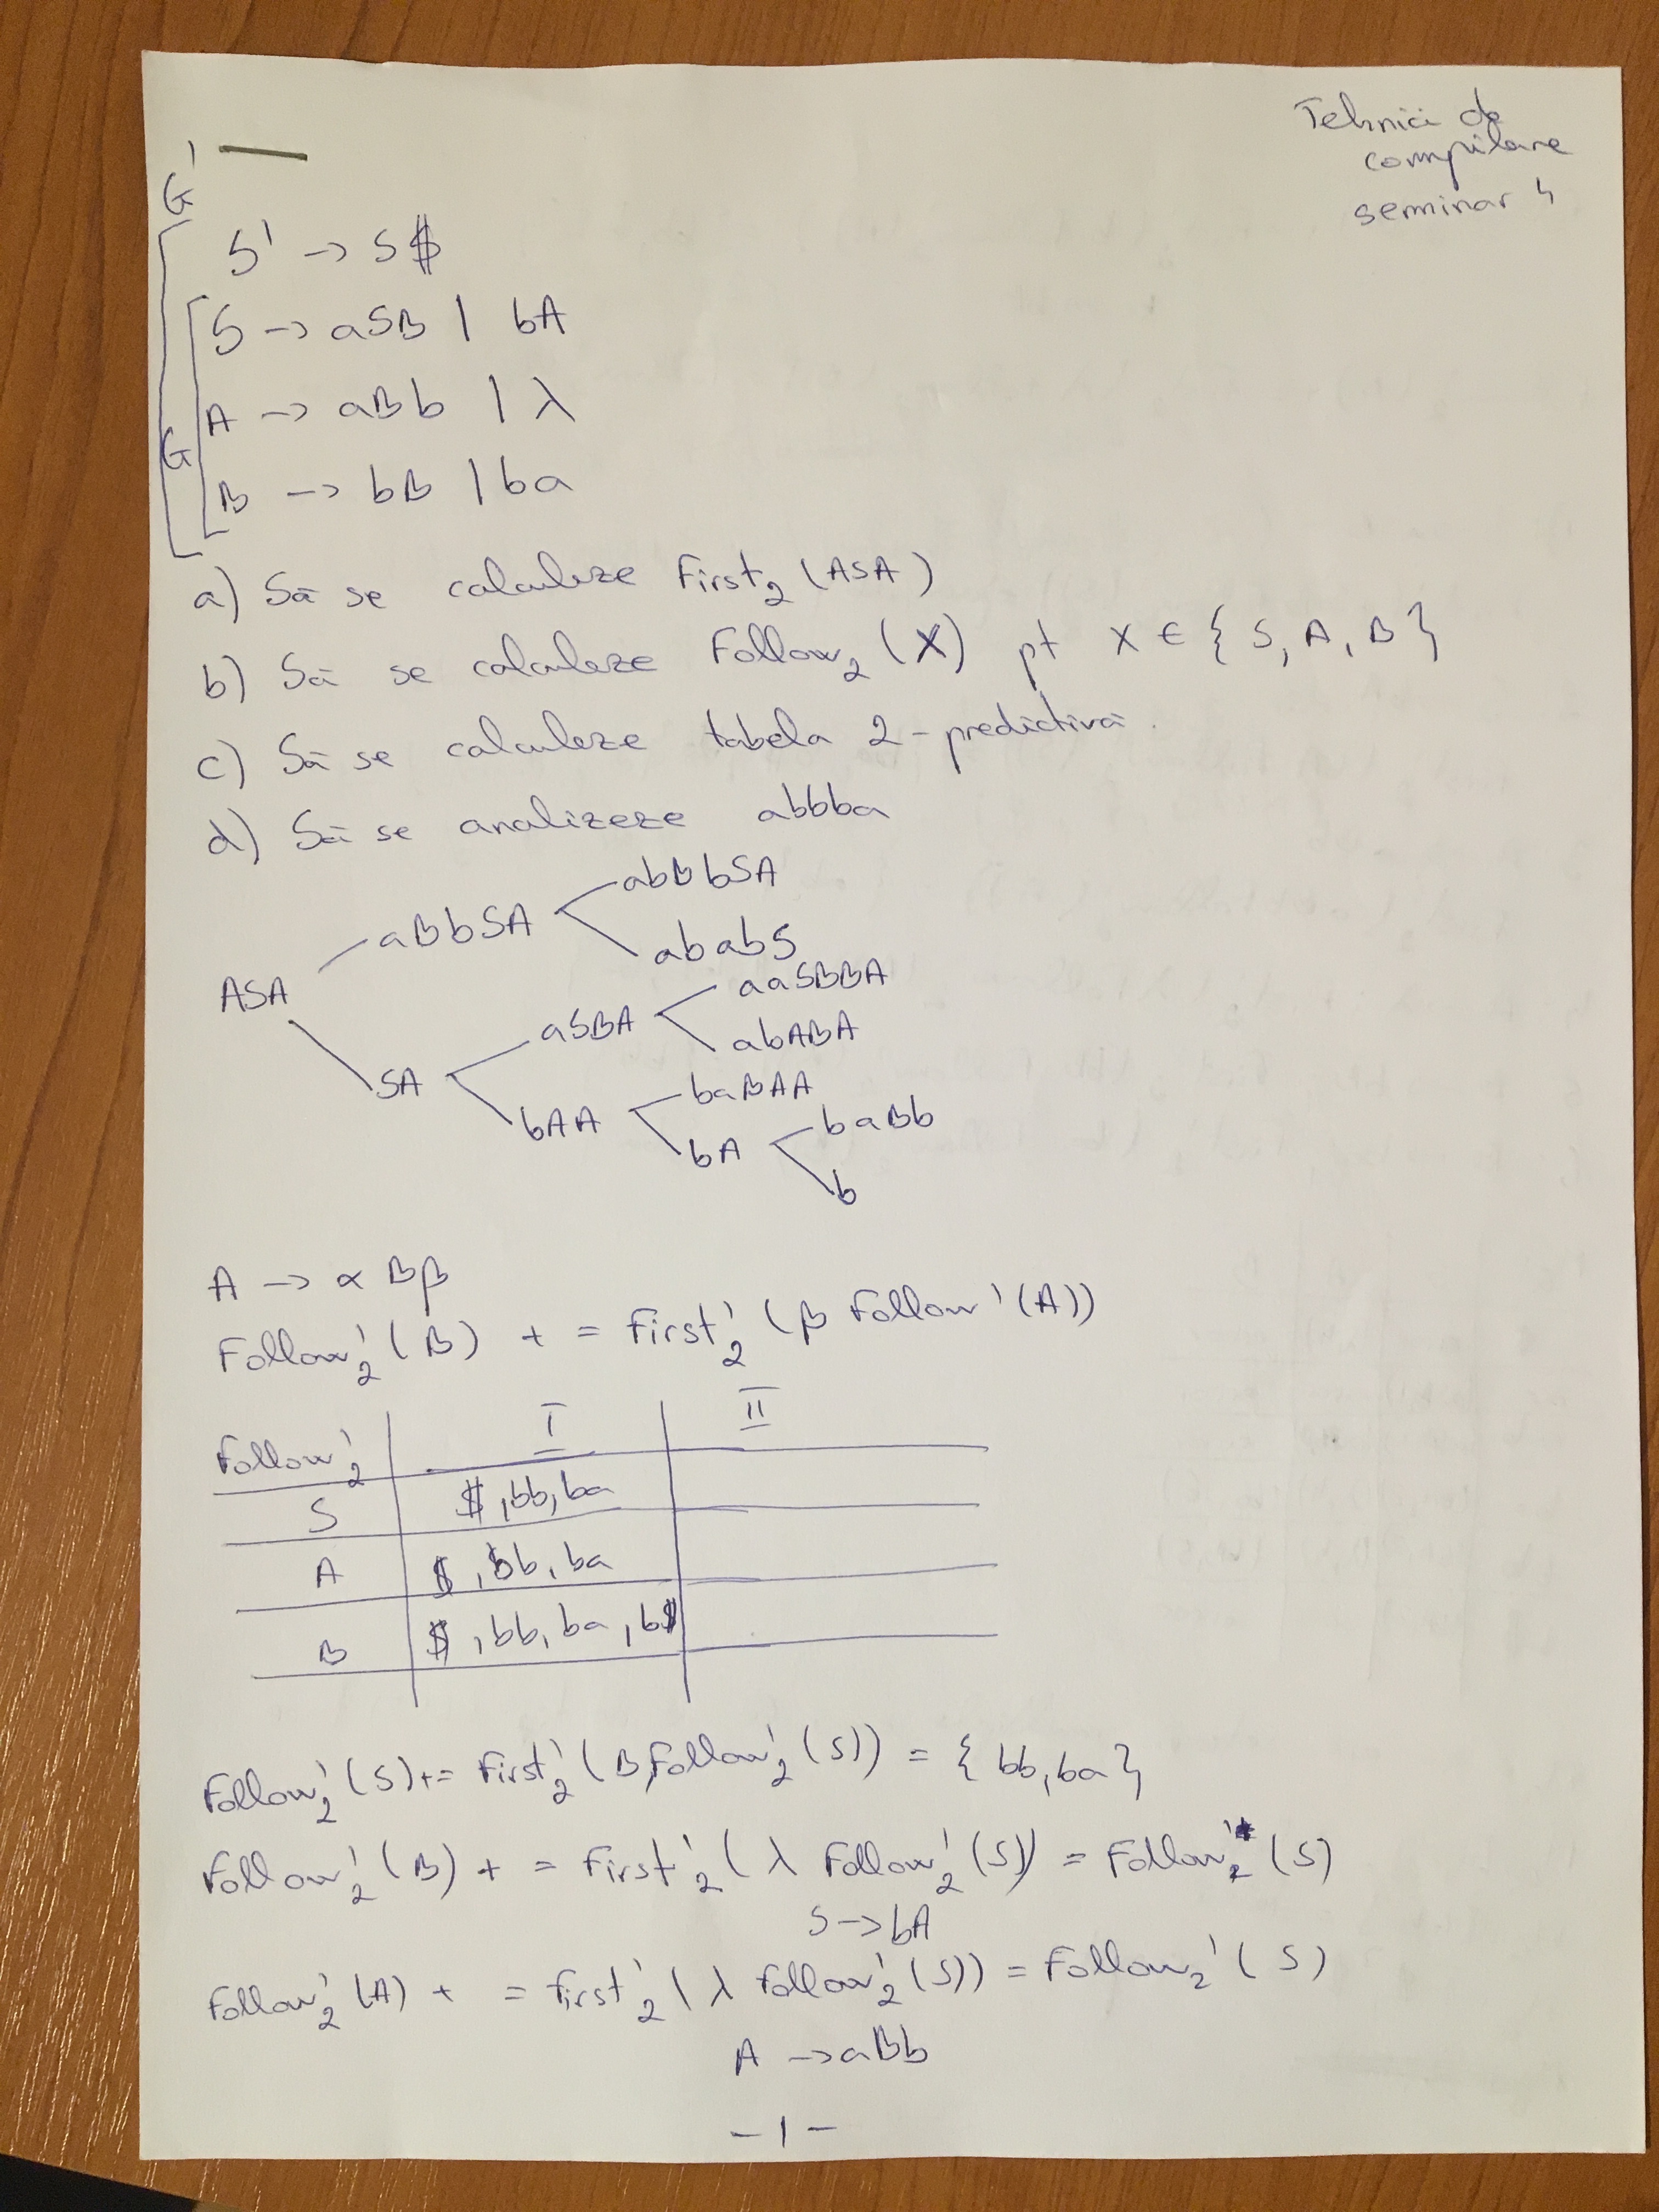 Tehnici de
compilare
seminar 4
G'
S' -> S$
G
S -> aSB | bA
A -> aBb | λ
B -> bB | ba
a) Să se calculeze First₂ (ASA)
b) Să se calculeze Follow₂ (X) pt X ∈ { S, A, B }
c) Să se calculeze tabela 2-predictivă.
d) Să se analizeze abbba
abBbSA
aBbSA
ababS
aaSBBA
ASA
aSBA
abABA
SA
baBAA
bAA
baBb
bA
b
A -> α Bβ
Follow'₂ (B) + = First'₂ (β Follow' (A))
Follow'₂ I II
S $, bb, ba
A $, bb, ba
B $, bb, ba, b$
Follow'₂ (S) += First'₂ (B Follow'₂ (S)) = { bb, ba }
Follow'₂ (B) + = First'₂ (λ Follow'₂ (S)) = Follow'₂ (S)
S -> bA
Follow'₂ (A) + = First'₂ (λ Follow'₂ (S)) = Follow₂' (S)
A -> aBb
-1-